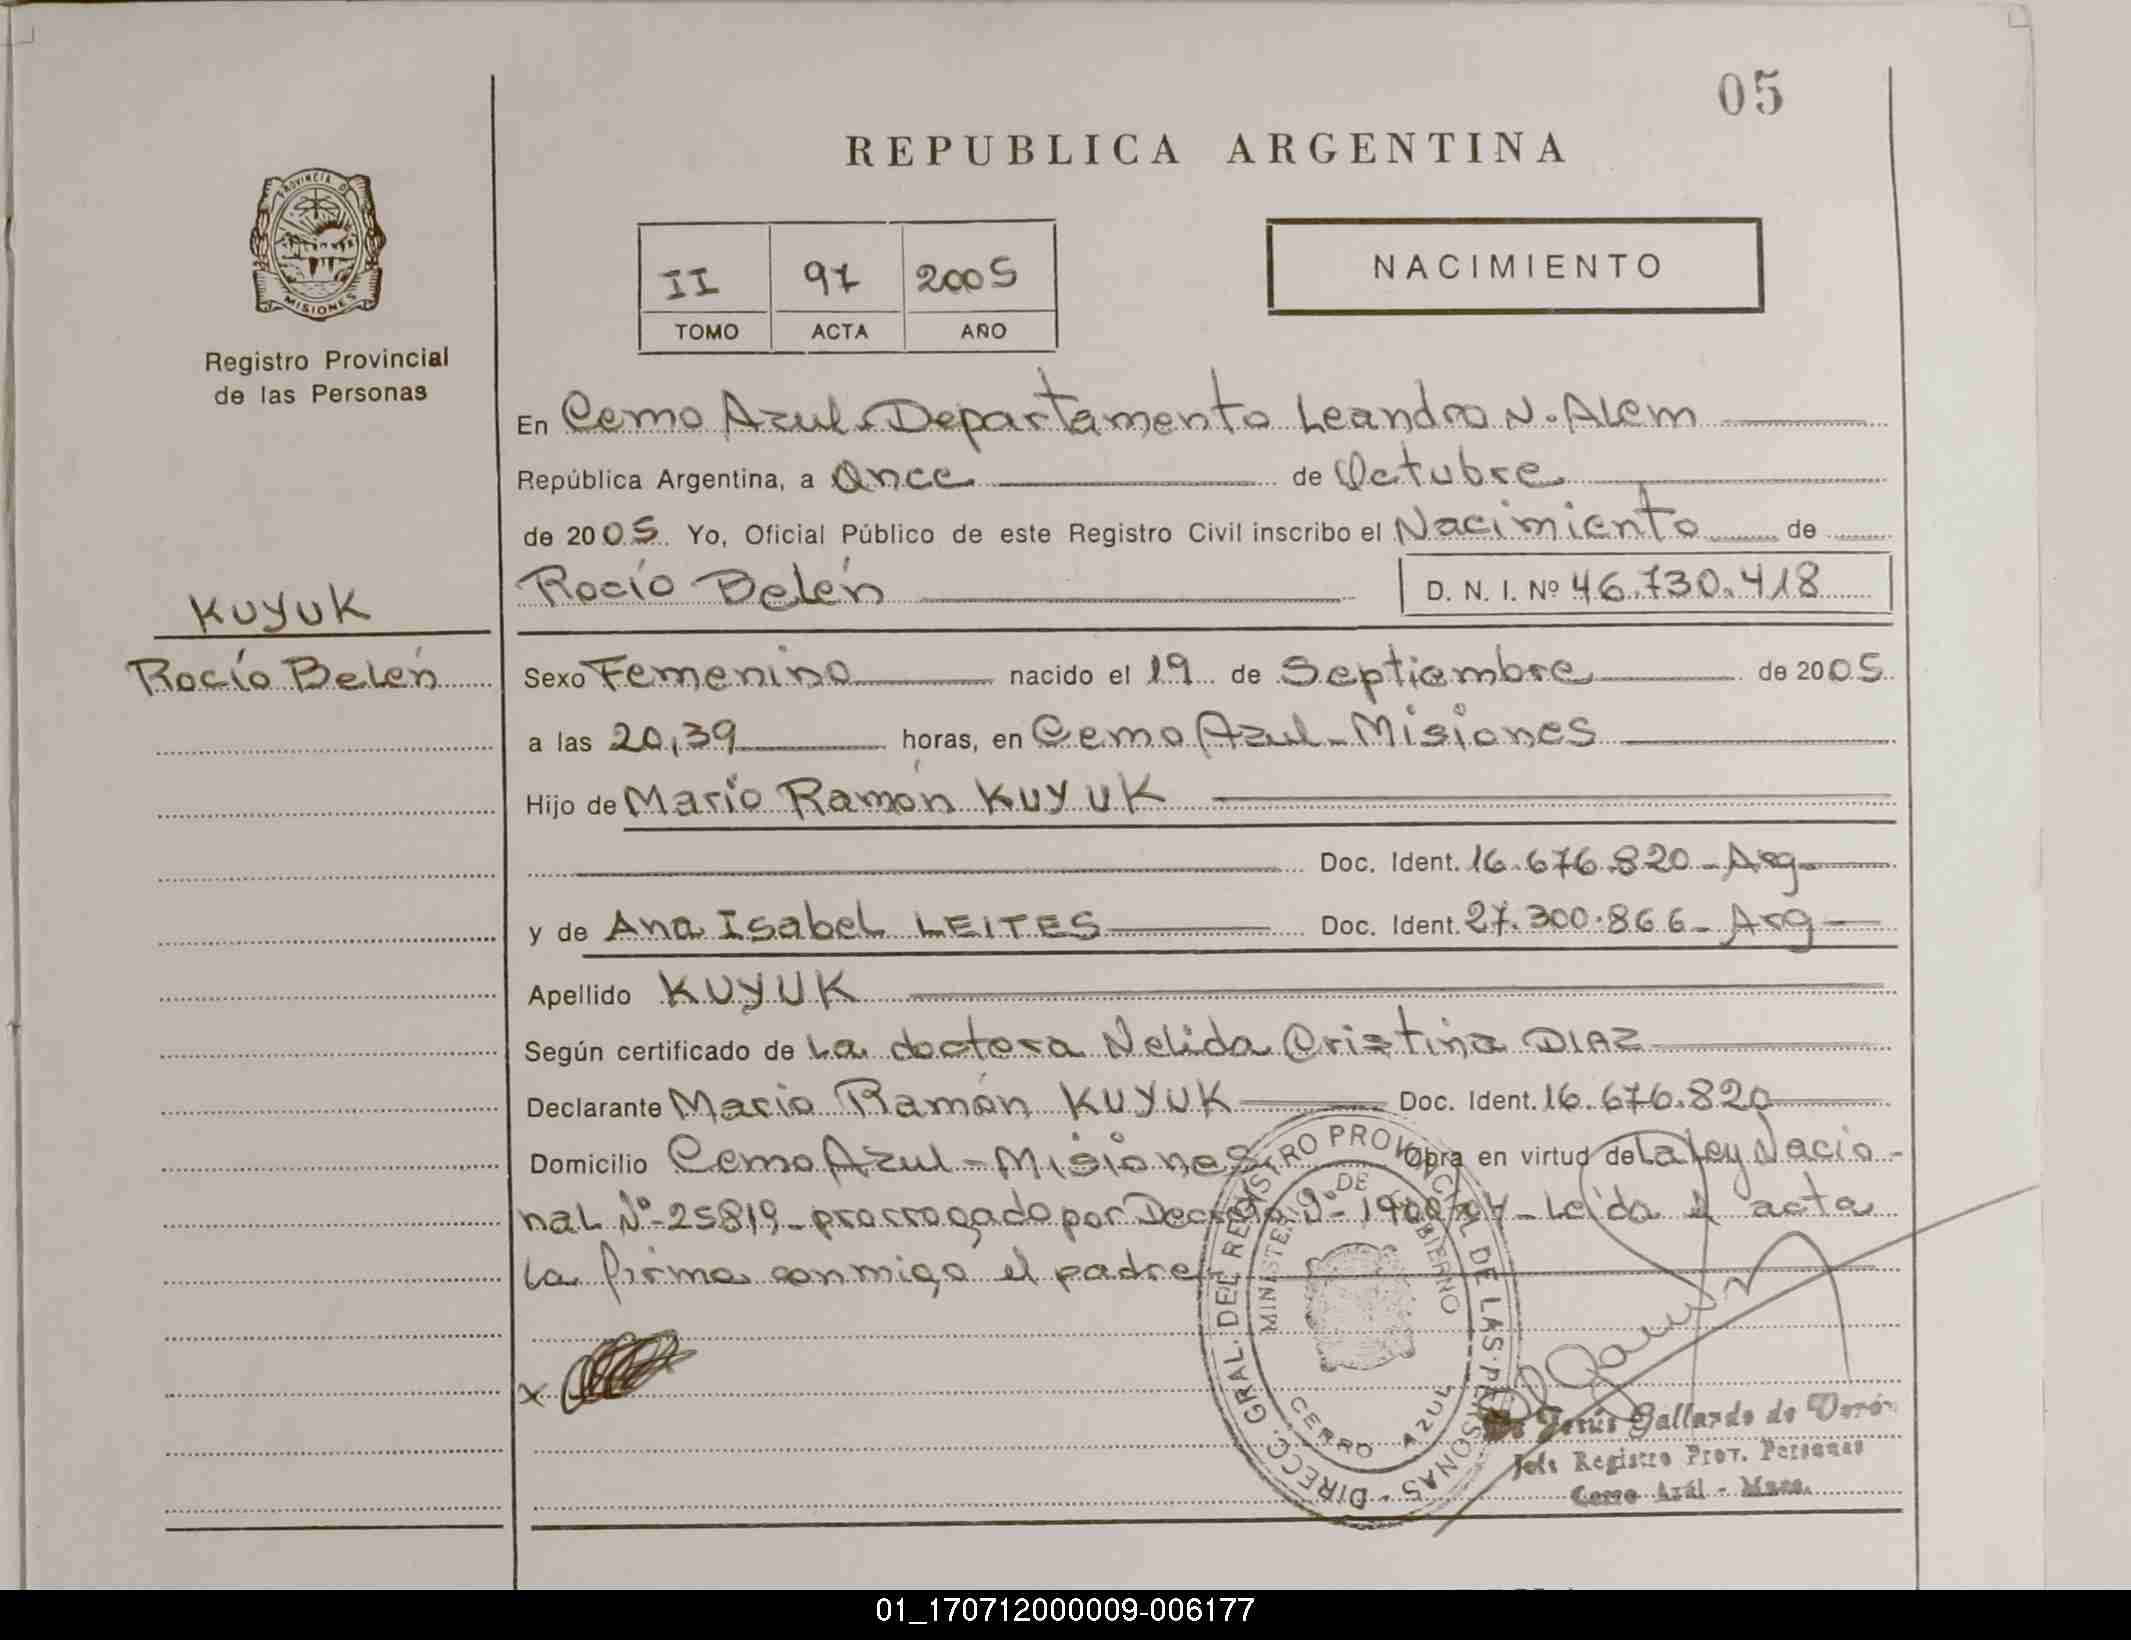 05
REPUBLICA ARGENTINA
PROVINCIA DE
MISIONES
Registro Provincial
de las Personas
II 97 2005
TOMO ACTA AÑO
NACIMIENTO
En Cerro Azul Departamento Leandro N. Alem
República Argentina, a Once de Octubre
de 2005 Yo, Oficial Público de este Registro Civil inscribo el Nacimiento de
Rocío Belén D. N. I. Nº 46.730.418
KUYUK
Rocío Belén
Sexo Femenino nacido el 19 de Septiembre de 2005
a las 20,39 horas, en Cerro Azul - Misiones
Hijo de Mario Ramón KUYUK
Doc. Ident. 16.676.820 - Arg
y de Ana Isabel LEITES Doc. Ident. 27.300.866 - Arg
Apellido KUYUK
Según certificado de La doctora Nelida Cristina DIAZ
Declarante Mario Ramón KUYUK Doc. Ident. 16.676.820
Domicilio Cerro Azul - Misiones Obra en virtud de La Ley Nacio-
nal Nº 25819 - prorrogado por Leída el acta
La firma conmigo el padre
x
DIRECC. GRAL. DEL REGISTRO PROVINCIAL DE LAS PERSONAS
MINISTERIO DE GOBIERNO
CERRO AZUL
Jesús Gallardo de
Jefe Registro Prov. Personas
Cerro Azul - Mnes.
01_170712000009-006177